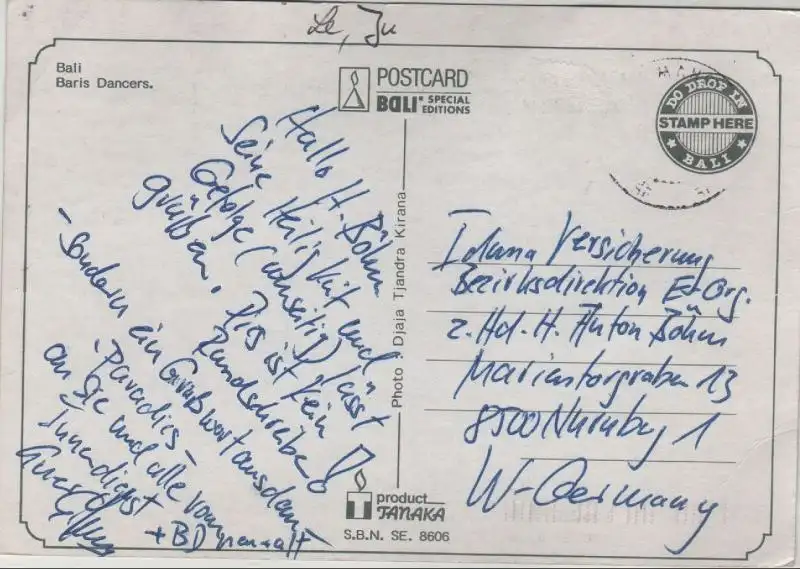 Le, Ju
Bali
Baris Dancers.
POSTCARD
BALI® SPECIAL EDITIONS
DO DROP IN
STAMP HERE
★ BALI ★
Hallo H. Böhm
Seine Heiligkeit und
Gefolge (umseitig) lässt
grüßen. Dies ist kein
Rundschreiben
- sondern ein Grußwort aus dem
- Paradies -
an Sie und alle vom
Innendienst
+ BD
Photo : Djaja Tjandra Kirana
Iduna Versicherung
Bezirksdirektion E-Org.
z. Hd. H. Anton Böhm
Marientorgraben 13
8500 Nürnberg 1
W-Germany
product
TANAKA
S.B.N. SE. 8606